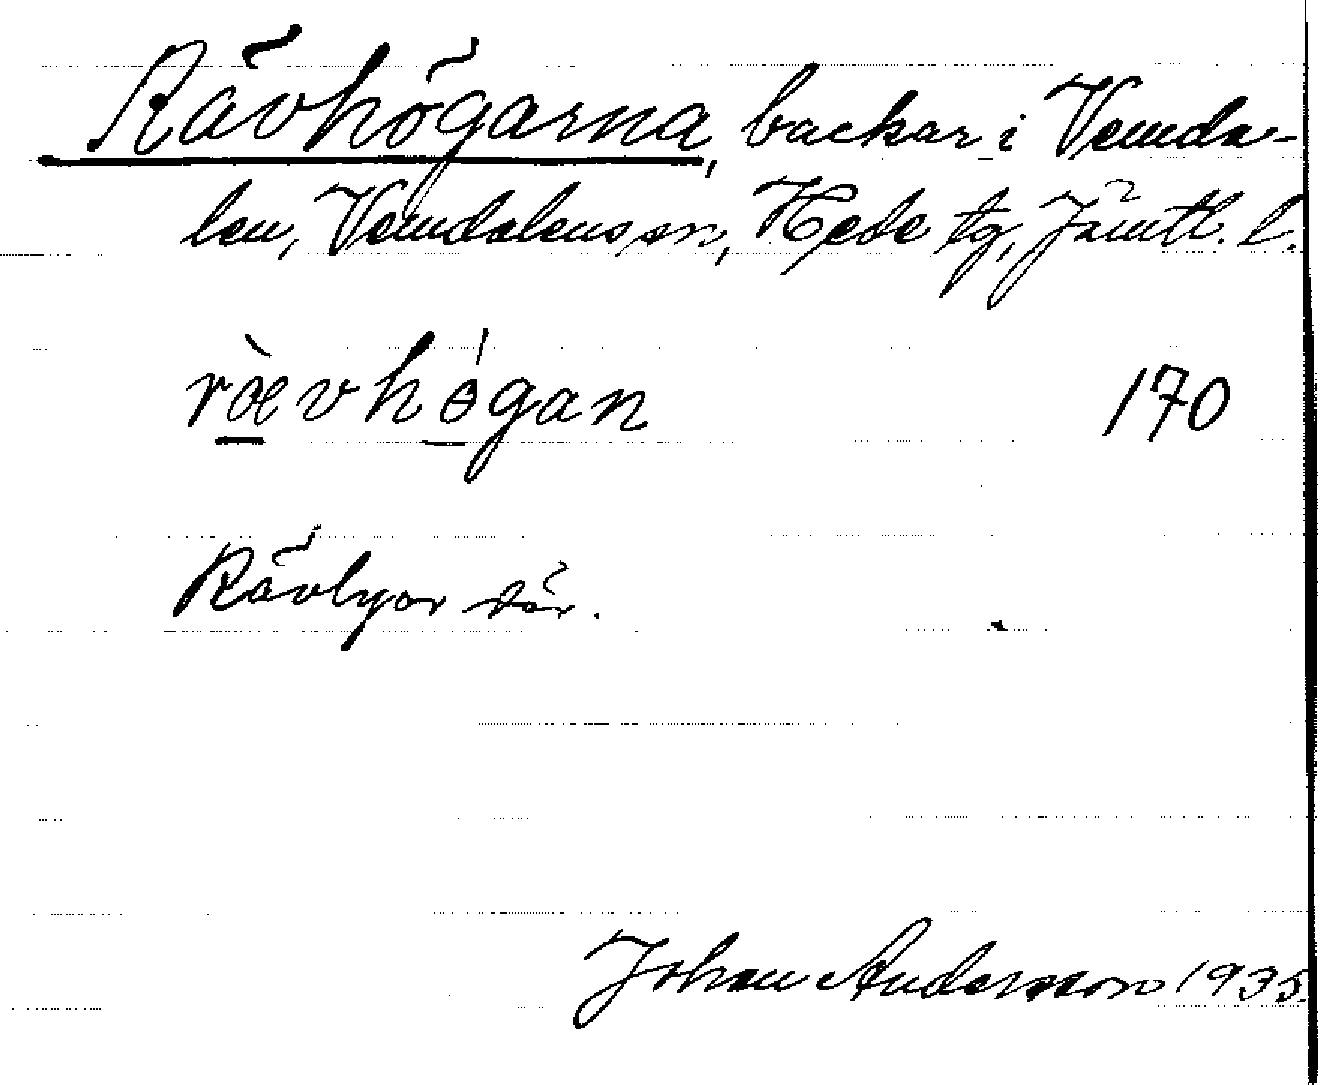 Rävhögarna, backar i Vemda-
len, Vemdalens sn, Hede tg, Jämtl. l.
rævhøgan 170
Rävlyor där.
Johan Andersson 1935.